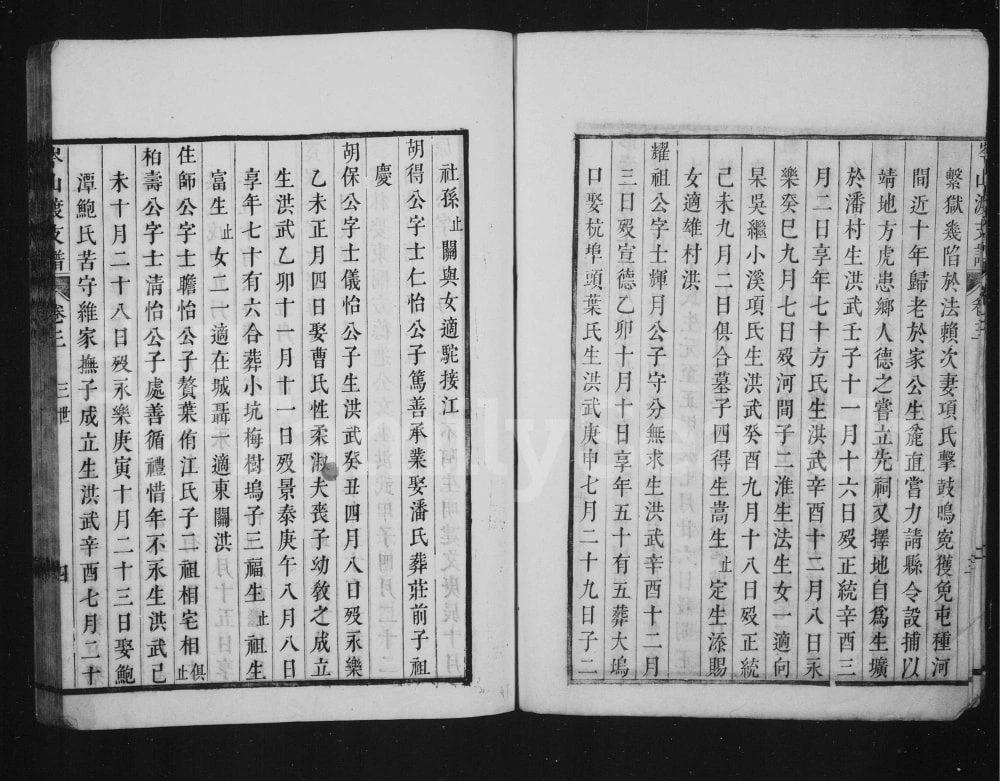 繫獄幾陷於法賴次妻項氏擊鼓鳴寃獲免屯種河
間近十年歸老於家公生麄直嘗力請縣令設捕以
靖地方虎患鄉人德之嘗立先祠又擇地自爲生壙
於潘村生洪武壬子十一月十六日歿正統辛酉三
月二日享年七十方氏生洪武辛酉十二月八日永
樂癸巳九月七日歿河間子二淮生法生女一適向
杲吳繼小溪項氏生洪武癸酉九月十八日歿正統
己未九月二日俱合墓子四得生嵩生止定生添賜
女適雄村洪
耀祖公字士輝月公子守分無求生洪武辛酉十二月
三日歿宣德乙卯十月十日享年五十有五葬大塢
口娶杭埠頭葉氏生洪武庚申七月二十九日子二
社孫止關與女適駝接江
胡得公字士仁怡公子篤善承業娶潘氏葬莊前子祖
慶
胡保公字士儀怡公子生洪武癸丑四月八日歿永樂
乙未正月四日娶曹氏性柔淑夫喪子幼敎之成立
生洪武乙卯十一月十一日歿景泰庚午八月八日
享年七十有六合葬小坑梅樹塢子三福生止祖生
富生止女二適在城聶適東關洪
住師公字士瞻怡公子贅葉侑江氏子二祖相宅相俱止
柏壽公字士淸怡公子處善循禮惜年不永生洪武己
未十月二十八日歿永樂庚寅十月二十三日娶鮑
潭鮑氏苦守維家撫子成立生洪武辛酉七月二十
岑山渡支譜 卷三 三世 四